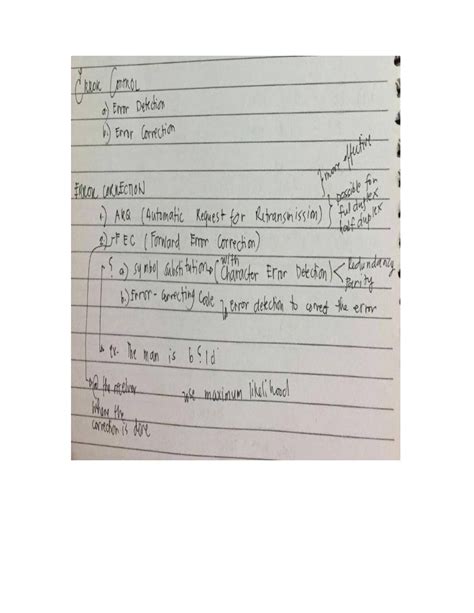 Error Control
a) Error Detection
b) Error Correction
ERROR CORRECTION
1) ARQ (Automatic Request for Retransmission) } possible for full duplex half duplex
} more effective
2) FEC (Forward Error Correction)
{ a) symbol substitution (with Character Error Detection) < Redundancy Parity
b) Error-Correcting Code error detection to correct the error
ex. The man is b{ld
@ the receiver where the correction is done
use maximum likelihood